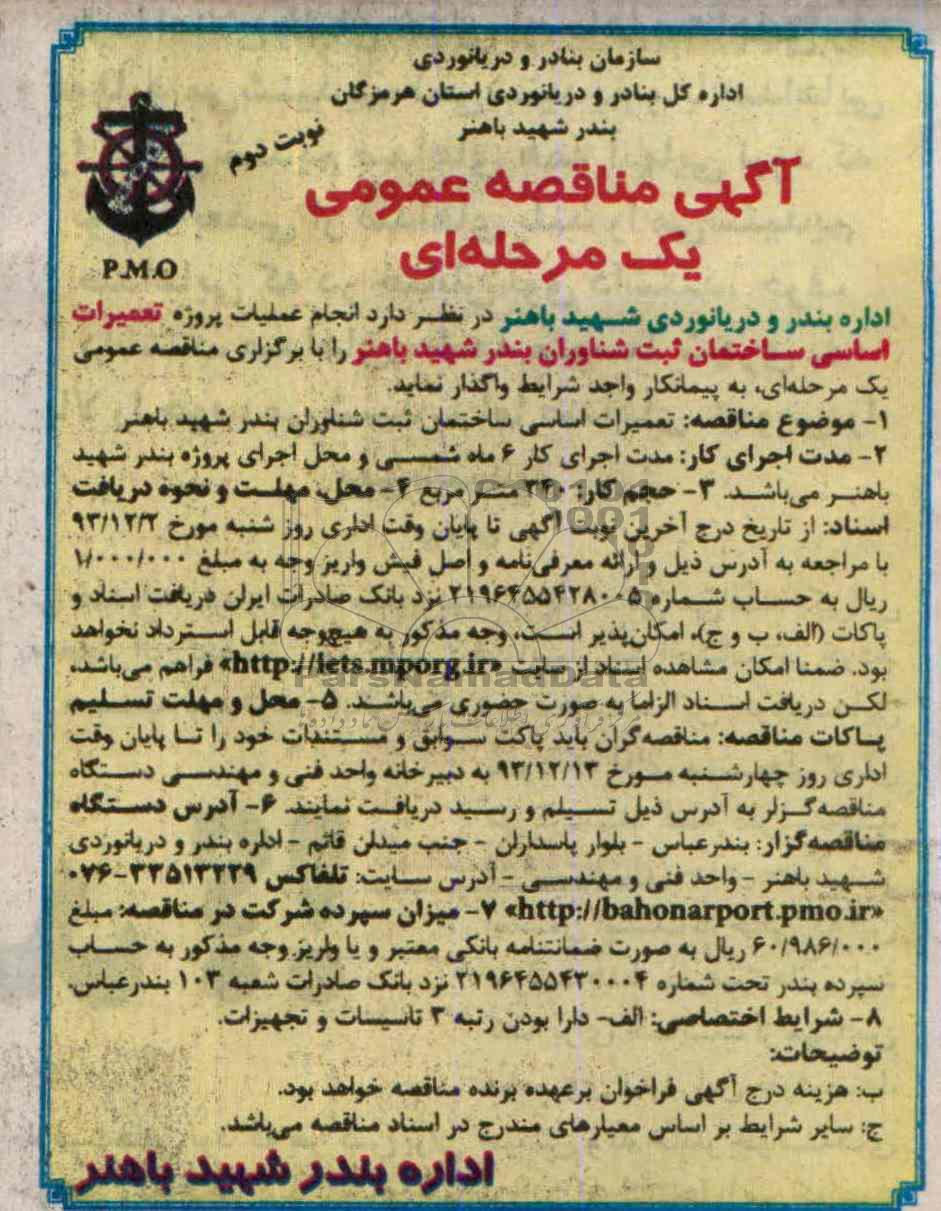 سازمان بنادر و دریانوردی
اداره کل بنادر و دریانوردی استان هرمزگان
بندر شهید باهنر
نوبت دوم
آگهی مناقصه عمومی
یک مرحله‌ای
P.M.O
اداره بندر و دریانوردی شهید باهنر در نظر دارد انجام عملیات پروژه تعمیرات
اساسی ساختمان ثبت شناوران بندر شهید باهنر را با برگزاری مناقصه عمومی
یک مرحله‌ای، به پیمانکار واجد شرایط واگذار نماید.
۱- موضوع مناقصه: تعمیرات اساسی ساختمان ثبت شناوران بندر شهید باهنر
۲- مدت اجرای کار: مدت اجرای کار ۶ ماه شمسی و محل اجرای پروژه بندر شهید
باهنر می‌باشد. ۳- حجم کار: ۳۴۰ متر مربع ۴- محل، مهلت و نحوه دریافت
اسناد: از تاریخ درج آخرین نوبت آگهی تا پایان وقت اداری روز شنبه مورخ ۹۳/۱۲/۲
با مراجعه به آدرس ذیل و ارائه معرفی‌نامه و اصل فیش واریز وجه به مبلغ ۱/۰۰۰/۰۰۰
ریال به حساب شماره ۲۱۹۶۴۵۵۴۲۸۰۰۵ نزد بانک صادرات ایران دریافت اسناد و
پاکات (الف، ب و ج)، امکان‌پذیر است، وجه مذکور به هیچ‌وجه قابل استرداد نخواهد
بود. ضمنا امکان مشاهده اسناد از سایت «http://iets.mporg.ir» فراهم می‌باشد،
ParsNamadData
لکن دریافت اسناد الزاما به صورت حضوری می‌باشد. ۵- محل و مهلت تسلیم
پاکات مناقصه: مناقصه‌گران باید پاکت سوابق و مستندات خود را تا پایان وقت
اداری روز چهارشنبه مورخ ۹۳/۱۲/۱۳ به دبیرخانه واحد فنی و مهندسی دستگاه
مناقصه‌گزار به آدرس ذیل تسیلم و رسید دریافت نمایند. ۶- آدرس دستگاه
مناقصه‌گزار: بندرعباس - بلوار پاسداران - جنب میدان قائم - اداره بندر و دریانوردی
شهید باهنر - واحد فنی و مهندسی - آدرس سایت: تلفاکس ۳۳۵۱۳۲۲۹-۰۷۶
«http://bahonarport.pmo.ir» ۷- میزان سپرده شرکت در مناقصه: مبلغ
۶۰/۹۸۶/۰۰۰ ریال به صورت ضمانتنامه بانکی معتبر و یا واریز وجه مذکور به حساب
سپرده بندر تحت شماره ۲۱۹۶۴۵۵۴۳۰۰۰۴ نزد بانک صادرات شعبه ۱۰۳ بندرعباس.
۸- شرایط اختصاصی: الف- دارا بودن رتبه ۳ تاسیسات و تجهیزات.
توضیحات:
ب: هزینه درج آگهی فراخوان برعهده برنده مناقصه خواهد بود.
ج: سایر شرایط بر اساس معیارهای مندرج در اسناد مناقصه می‌باشد.
اداره بندر شهید باهنر